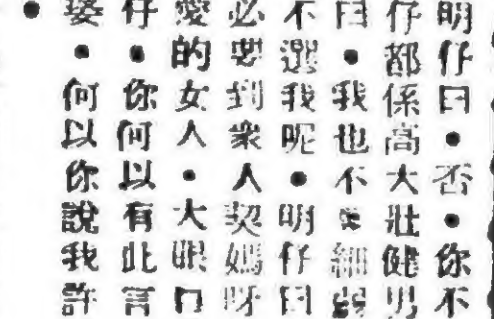 明仔曰●否●你不
仔都係高大壯健男
曰●我也不細弱
不選我呢●明仔曰
必要到衆人契媽呀
愛的女人●大眼口
仔●你何以有此言
婆●何以你說我許
●